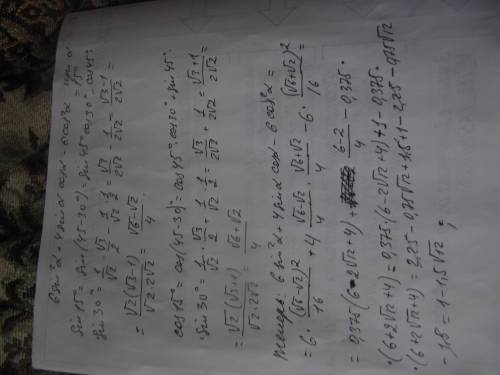 6 sin²α - 4 sinα cosα - 6 cos²α при α = 15°
sin 15° = sin(45-30°) = sin 45° cos 30° - cos 45°·
sin 30° = 1/√2 · √3/2 - 1/√2 · 1/2 = √3/2√2 - 1/2√2 = √3-1/2√2 =
= √2(√3-1)/√2·2√2 = √6-√2/4
cos 15° = cos(45-30°) = cos 45°·cos 30° + sin 45°·
·sin 30° = 1/√2 · √3/2 + 1/√2 · 1/2 = √3/2√2 + 1/2√2 = √3+1/2√2 =
= √2(√3+1)/√2·2√2 = √6+√2/4
теперь: 6 sin²α + 4 sinα cosα - 6 cos²α =
= 6·(√6-√2)²/16 + 4 √6-√2/4 · √6+√2/4 - 6·(√6+√2)²/16 =
= 0,375(6-2√12+4) + 6-2/4 - 0,375·
·(6+2√12+4) = 0,375(6-2√12+4)+1-0,375·
·(6+2√12+4) = 2,25 - 0,75√12 + 1,5 + 1 - 2,25 - 0,75√12
- 1,8 = 1-1,5√12;